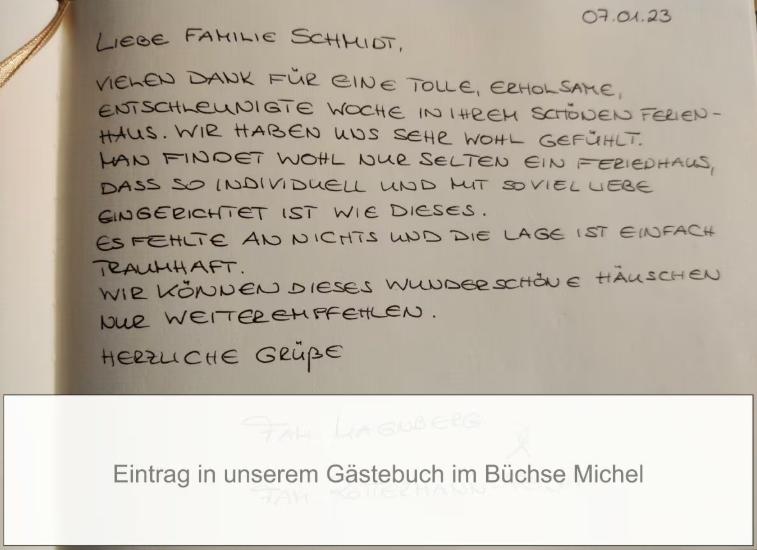 07.01.23
LIEBE FAMILIE SCHMIDT,
VIELEN DANK FÜR EINE TOLLE, ERHOLSAME,
ENTSCHLEUNIGTE WOCHE IN IHREM SCHÖNEN FERIEN-
HAUS. WIR HABEN UNS SEHR WOHL GEFÜHLT.
MAN FINDET WOHL NUR SELTEN EIN FERIEDHAUS,
DASS SO INDIVIDUELL UND MIT SOVIEL LIEBE
EINGERICHTET IST WIE DIESES.
ES FEHLTE AN NICHTS UND DIE LAGE IST EINFACH
TRAUMHAFT.
WIR KÖNNEN DIESES WUNDERSCHÖNE HÄUSCHEN
NUR WEITEREMPFEHLEN.
HERZLICHE GRÜßE
FAM
Eintrag in unserem Gästebuch im Büchse Michel
FAM